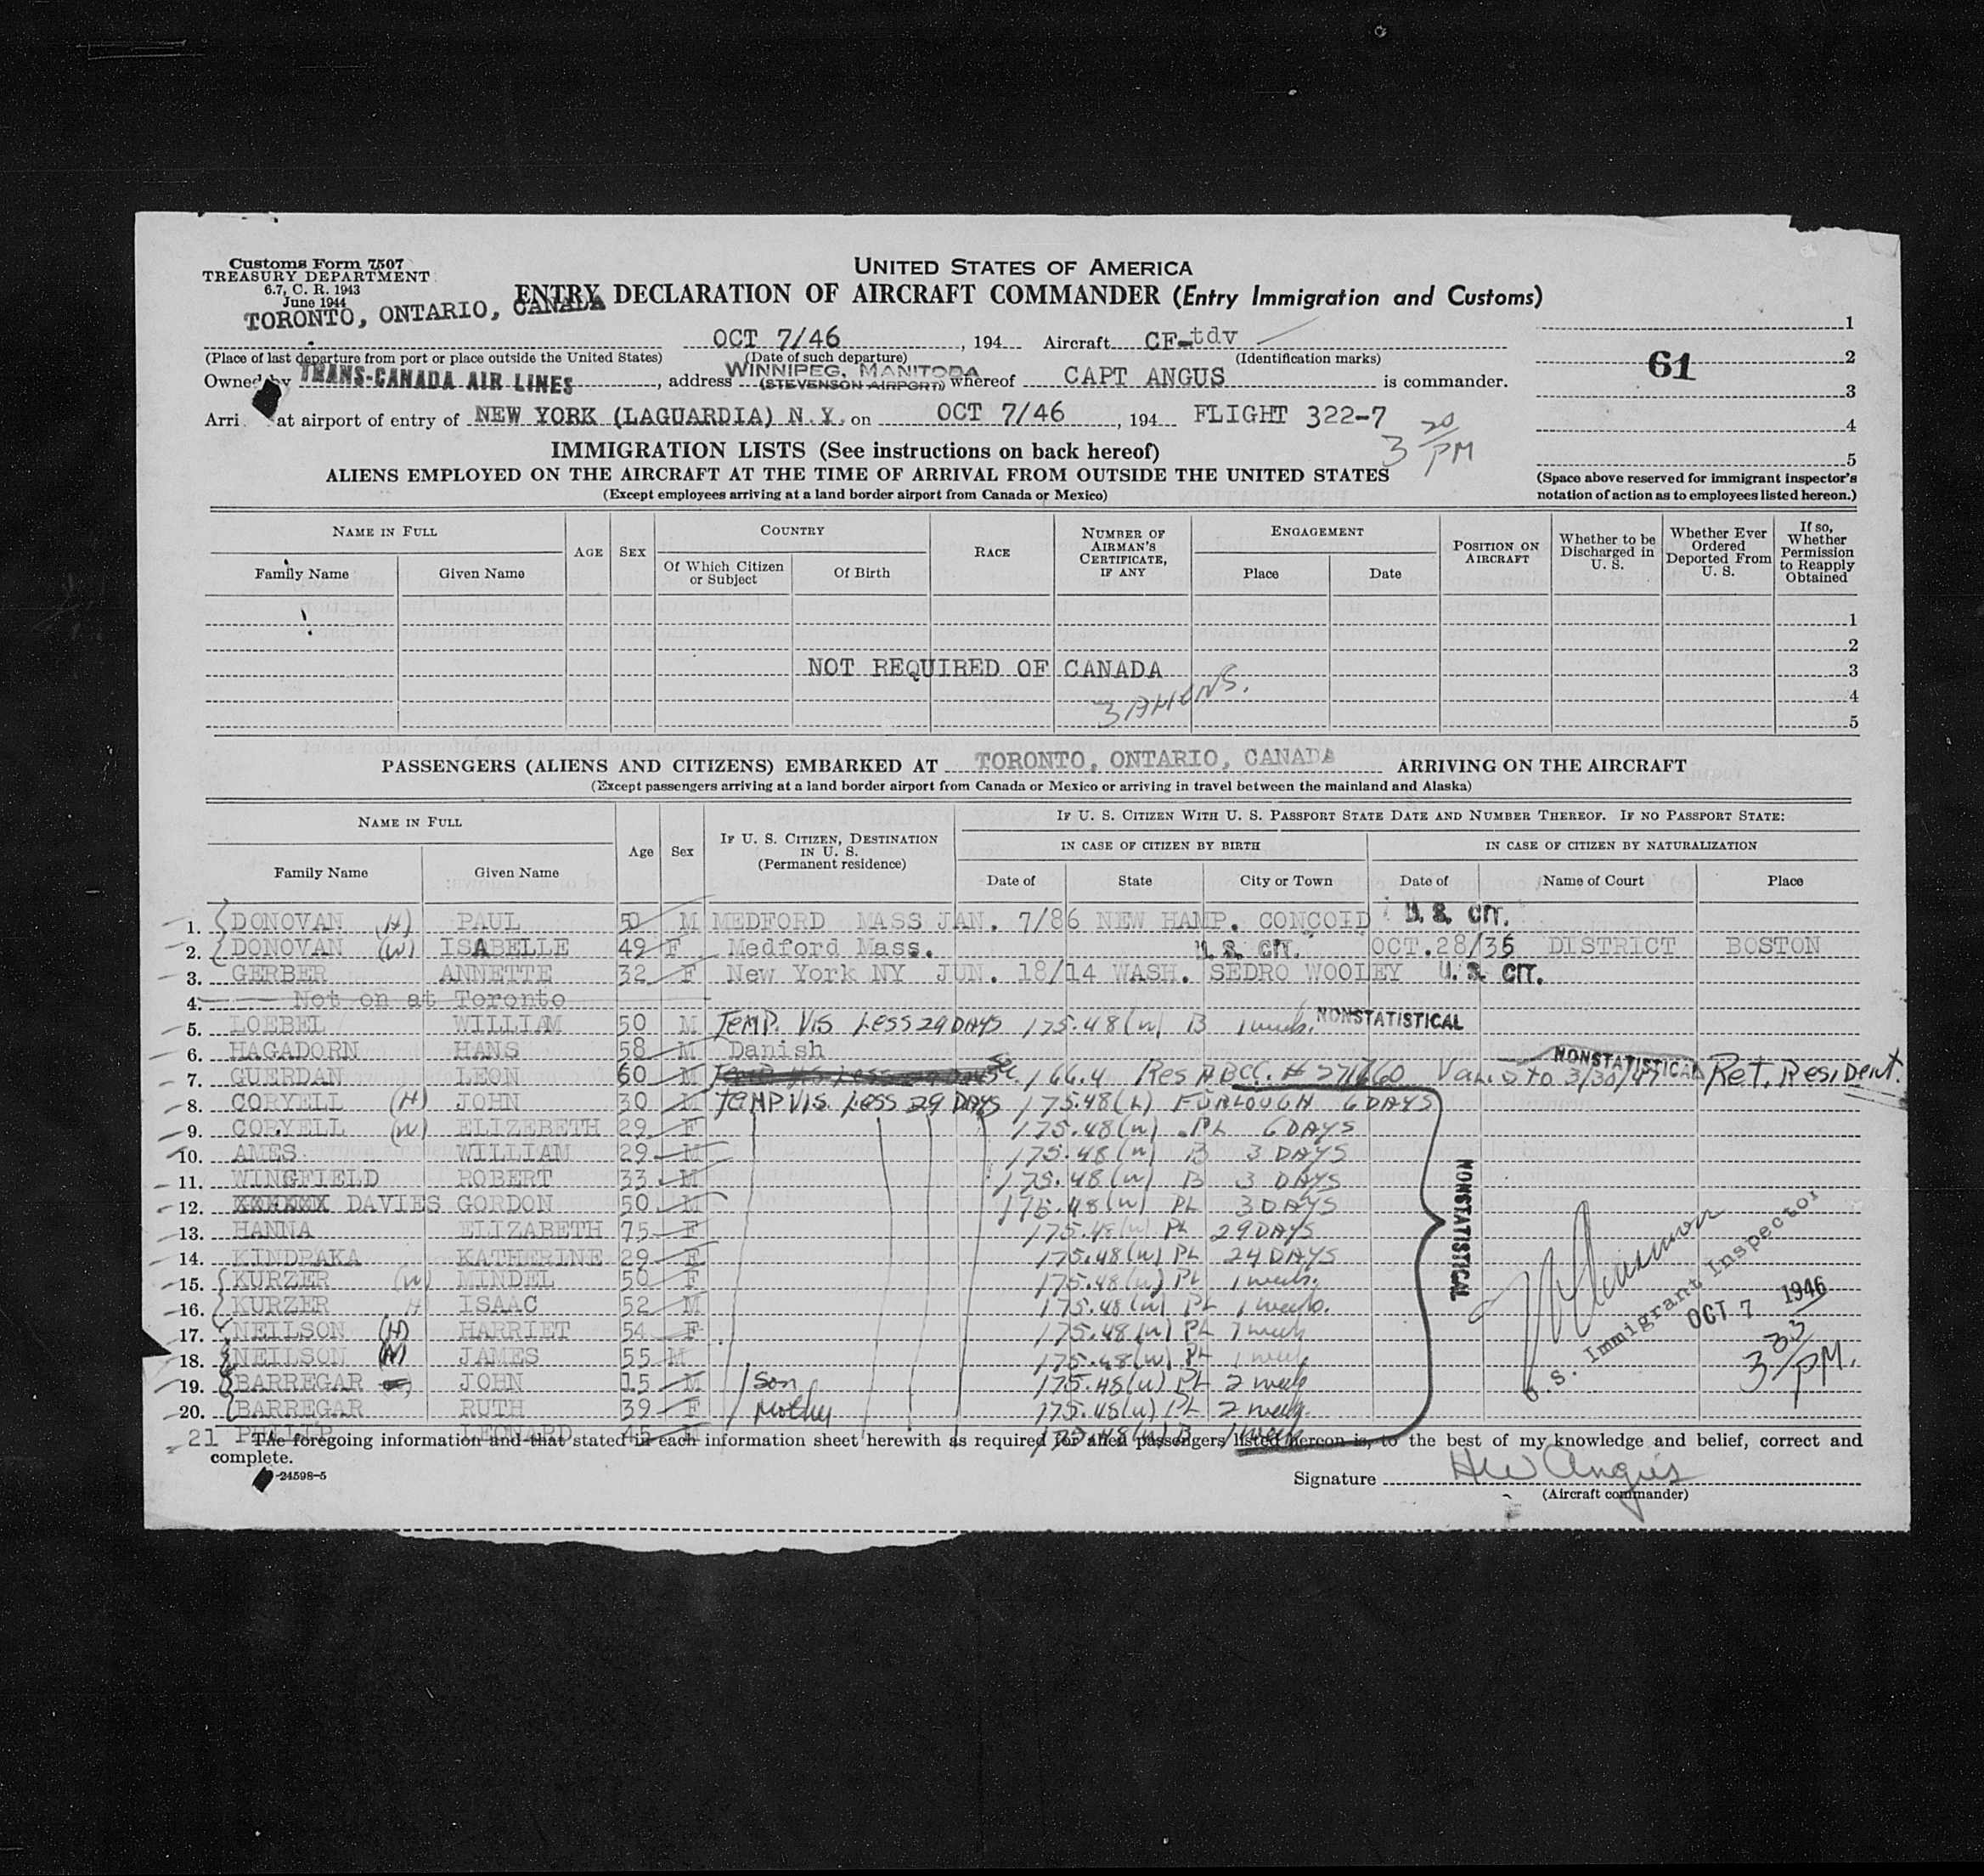 Customs Form 7507
TREASURY DEPARTMENT
6.7, C. R. 1943
June 1944
UNITED STATES OF AMERICA
ENTRY DECLARATION OF AIRCRAFT COMMANDER (Entry Immigration and Customs)
TORONTO, ONTARIO, CANADA
OCT 7/46, 194 Aircraft CF-tdv
(Place of last departure from port or place outside the United States) (Date of such departure) (Identification marks)
Owned by TRANS-CANADA AIR LINES, address WINNIPEG, MANITOBA (STEVENSON AIRPORT) whereof CAPT ANGUS is commander.
Arri at airport of entry of NEW YORK (LAGUARDIA) N.Y. on OCT 7/46, 194 FLIGHT 322-7
3 20 PM
1
2
61
3
4
5
(Space above reserved for immigrant inspector's notation of action as to employees listed hereon.)
IMMIGRATION LISTS (See instructions on back hereof)
ALIENS EMPLOYED ON THE AIRCRAFT AT THE TIME OF ARRIVAL FROM OUTSIDE THE UNITED STATES
(Except employees arriving at a land border airport from Canada or Mexico)
NAME IN FULL AGE SEX COUNTRY RACE NUMBER OF AIRMAN'S CERTIFICATE, IF ANY ENGAGEMENT POSITION ON AIRCRAFT Whether to be Discharged in U. S. Whether Ever Ordered Deported From U. S. If so, Whether Permission to Reapply Obtained
Family Name Given Name Of Which Citizen or Subject Of Birth Place Date
1
2
NOT REQUIRED OF CANADA 3
4
5
PASSENGERS (ALIENS AND CITIZENS) EMBARKED AT TORONTO, ONTARIO, CANADA ARRIVING ON THE AIRCRAFT
(Except passengers arriving at a land border airport from Canada or Mexico or arriving in travel between the mainland and Alaska)
NAME IN FULL Age Sex IF U. S. CITIZEN, DESTINATION IN U. S. (Permanent residence) IF U. S. CITIZEN WITH U. S. PASSPORT STATE DATE AND NUMBER THEREOF. IF NO PASSPORT STATE:
IN CASE OF CITIZEN BY BIRTH IN CASE OF CITIZEN BY NATURALIZATION
Family Name Given Name Date of State City or Town Date of Name of Court Place
1. DONOVAN (H) PAUL 50 M MEDFORD MASS JAN. 7/86 NEW HAMP. CONCOID U. S. CIT.
2. DONOVAN (W) ISABELLE 49 F Medford Mass. U. S. CIT. OCT.28/35 DISTRICT BOSTON
3. GERBER ANNETTE 32 F New York NY JUN. 18/14 WASH. SEDRO WOOLEY U. S. CIT.
4. Not on at Toronto
5. LOEBEL WILLIAM 50 M TEMP. VIS LESS 29 DAYS 175.48(w) B 1 week. NONSTATISTICAL
6. HAGADORN HANS 58 M Danish
7. GUERDAN LEON 60 M Sec 166.4 Res A BCC. # 271660 Valid to 3/30/47 NONSTATISTICAL Ret. Resident.
8. CORYELL (H) JOHN 30 M TEMP VIS. LESS 29 DAYS 175.48(L) FURLOUGH 6 DAYS
9. CORYELL (W) ELIZEBETH 29 F 175.48(w) PL 6 DAYS
10. AMES WILLIAM 29 M 175.48(w) B 3 DAYS
11. WINGFIELD ROBERT 33 M 175.48(w) B 3 DAYS
12. DAVIES GORDON 50 M 175.48(w) PL 3 DAYS
13. HANNA ELIZABETH 75 F 175.48(w) PL 29 DAYS
14. KINDRAKA KATHERINE 29 F 175.48(w) PL 24 DAYS
15. KURZER (W) MINDEL 50 F 175.48(w) PL 1 week.
16. KURZER H ISAAC 52 M 175.48(w) PL 1 week.
17. NEILSON (H) HARRIET 54 F 175.48(w) PL 1 week
18. NEILSON (W) JAMES 55 M 175.48(w) PL 1 week
19. BARREGAR JOHN 15 M Son 175.48(w) PL 2 week
20. BARREGAR RUTH 39 F Mother 175.48(w) PL 2 week
21 PHILIP LEONARD 45 M 175.48(w) B 1 week
NONSTATISTICAL
U.S. Immigrant Inspector
OCT 7 1946
3 33 PM.
The foregoing information and that stated in each information sheet herewith as required for alien passengers listed hereon is, to the best of my knowledge and belief, correct and
complete.
24598-5
Signature HW Angus
(Aircraft commander)